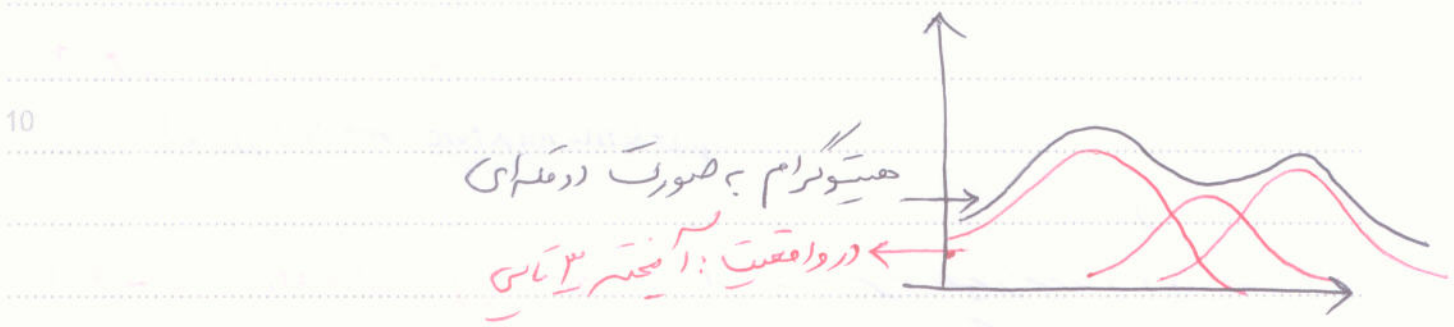 10
هیستوگرام به صورت دو قله‌ای
در واقعیت : آمیخته ۳ تایی